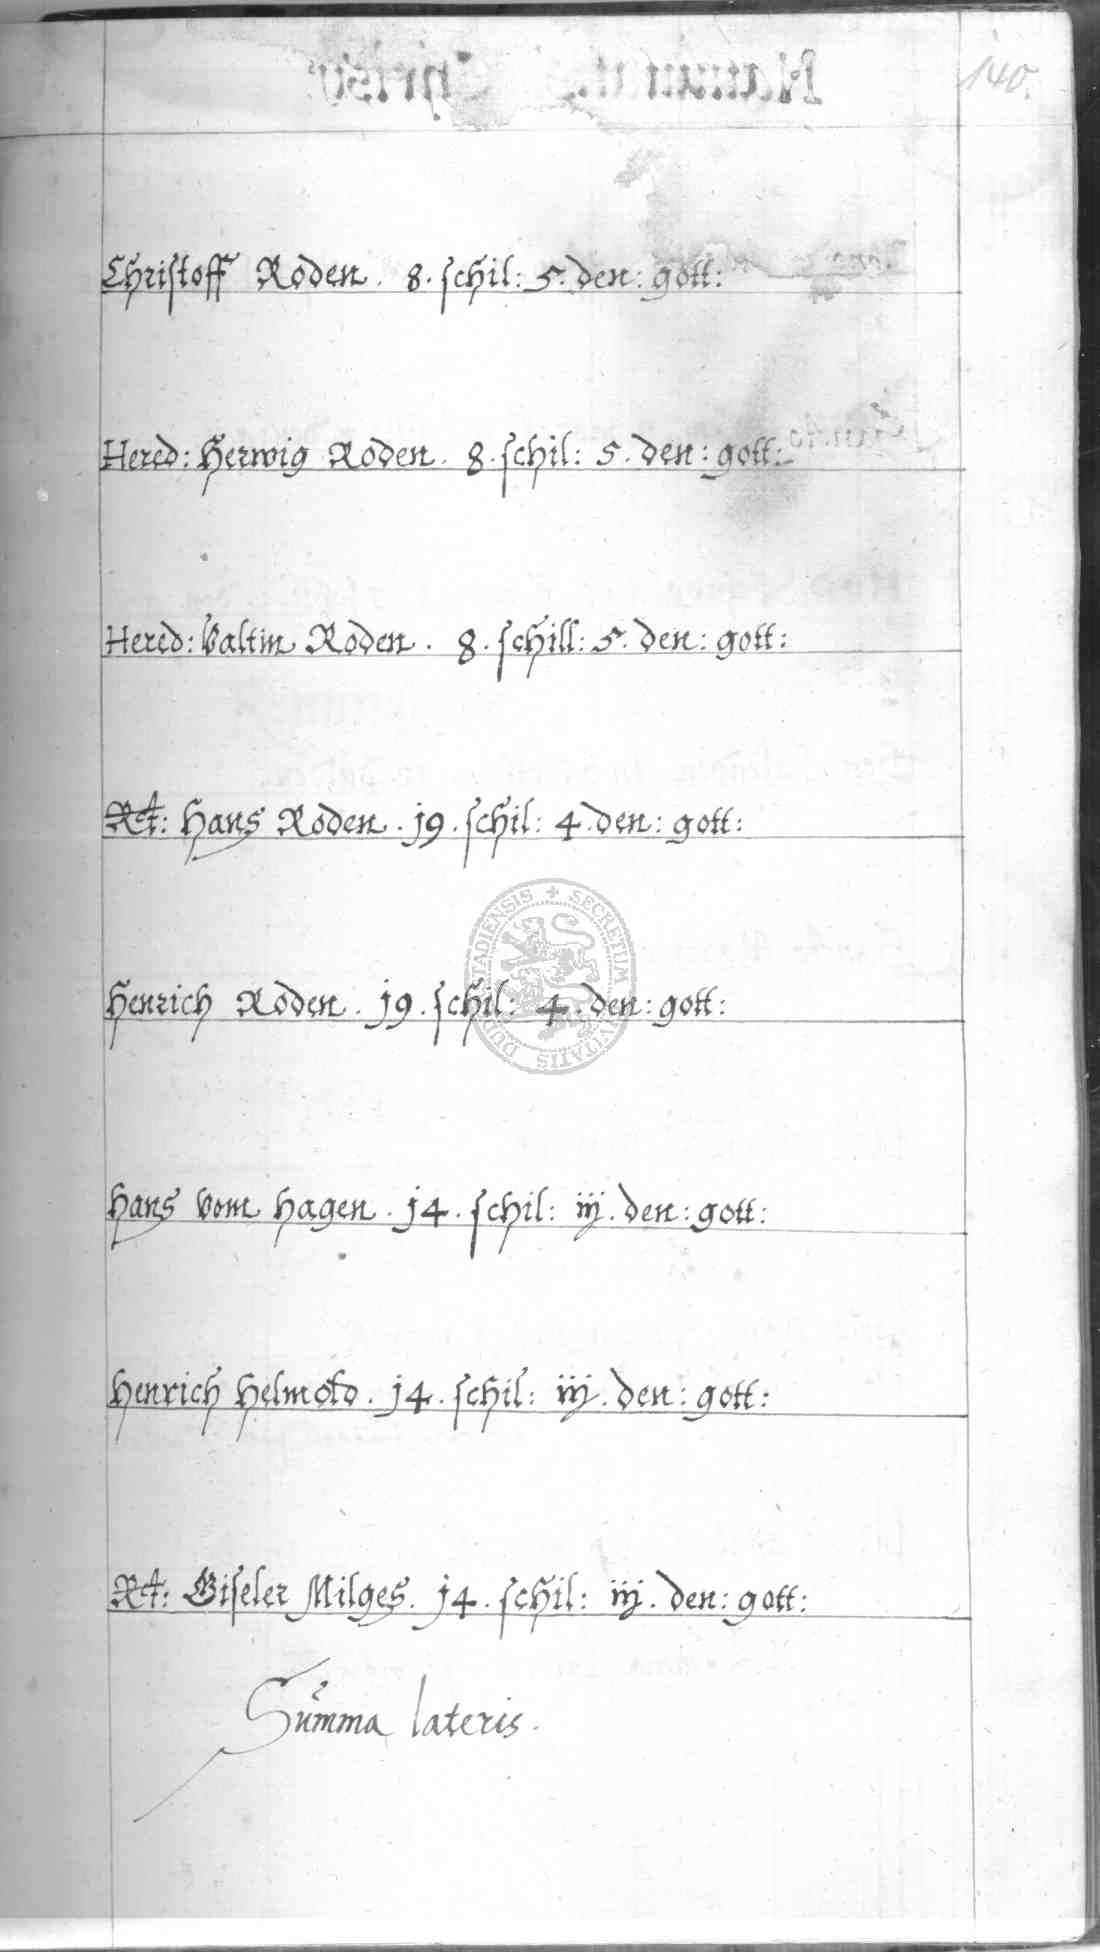 140.
Christoff Roden . 8 . schil : 5 . den : gott :
Hered : Herwig Roden . 8 . schil : 5 . den : gott :
Hered : Valtin Roden . 8 . schill : 5 . den : gott :
Hans Roden . j9 . schil : 4 . den : gott :
Henrich Roden . j9 . schil : 4 . den : gott :
Hans vom Hagen . j4 . schil : iij . den : gott :
Henrich Helmold . j4 . schil : iij . den : gott :
Giseler Milges . j4 . schil : iij . den : gott :
Summa lateris .
SECRETUM CIVITATIS DUDERSTADIENSIS